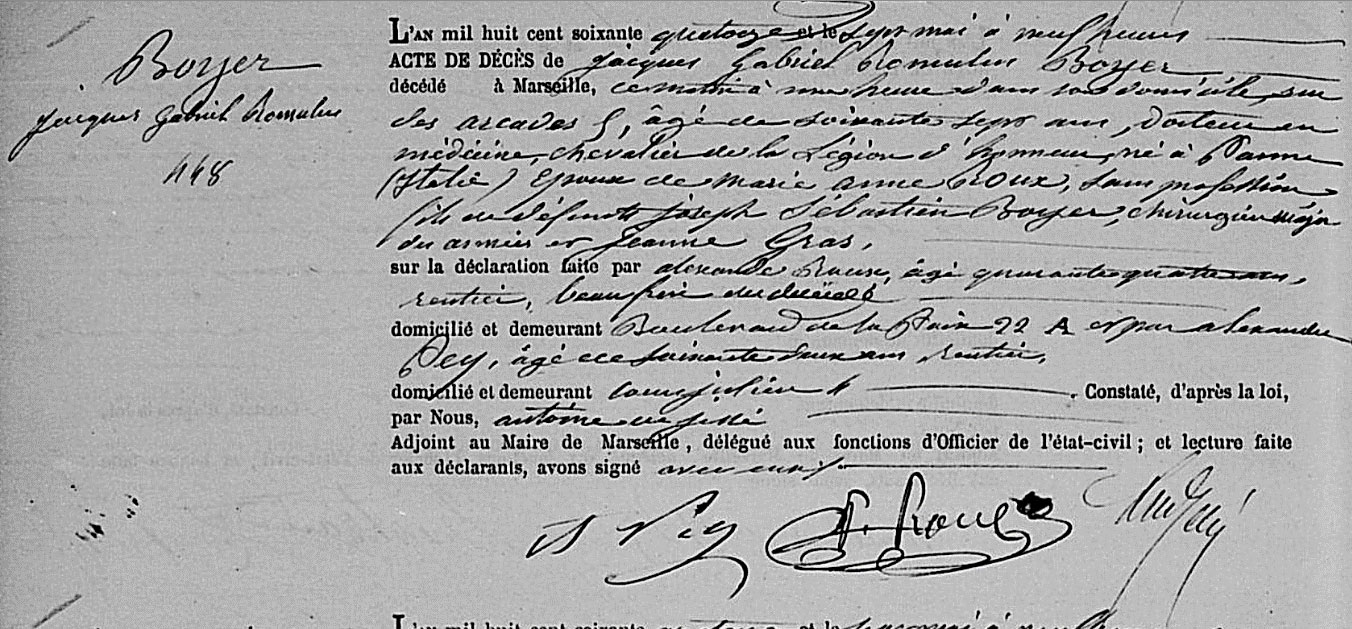 Boyer
Jacques Gabriel Romulus
448
L'AN mil huit cent soixante quatorze et le sept mai à neuf heures
ACTE DE DÉCÈS de Jacques Gabriel Romulus Boyer
décédé à Marseille, ce matin à une heure dans son domicile, rue
des arcades 5, âgé de soixante sept ans, Docteur en
médecine, chevalier de la Légion d'honneur, né à Parme
(Italie) Epoux de Marie Anne Roux, sans profession
fils de défunts Joseph Sébastien Boyer, chirurgien major
des armées et Jeanne Gras,
sur la déclaration faite par alexandre Roux, âgé quarante quatre ans,
rentier, beau frère du décédé
domicilié et demeurant Boulevard de la Paix 22 A et par alexandre
Pey, âgé de soixante deux ans rentier,
domicilié et demeurant cours julien 4 . Constaté, d'après la loi,
par Nous, antoine de jessé
Adjoint au Maire de Marseille, délégué aux fonctions d'Officier de l'état-civil ; et lecture faite
aux déclarants, avons signé avec eux.
A. Roux
L'AN mil huit cent soixante et le sept mai à